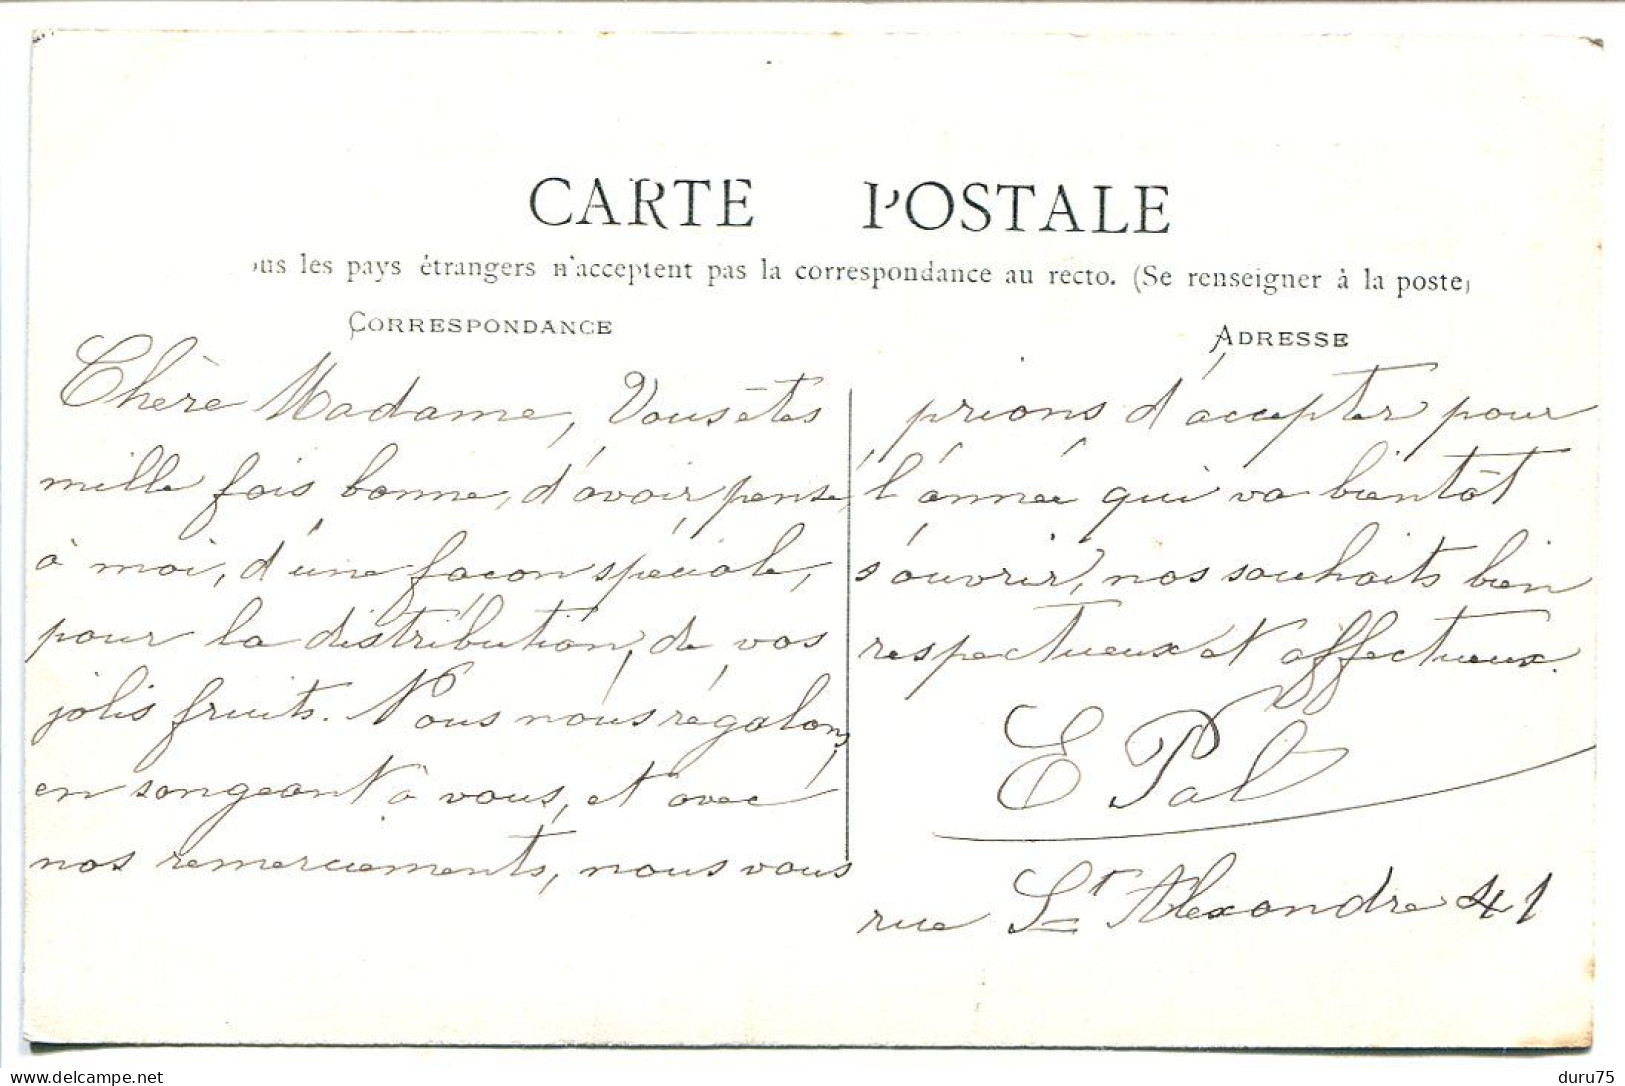 CARTE POSTALE
ous les pays étrangers n'acceptent pas la correspondance au recto. (Se renseigner à la poste)
CORRESPONDANCE
Chère Madame, Vous êtes
mille fois bonne, d'avoir pensé
à moi, d'une façon spéciale,
pour la distribution, de vos
jolis fruits. Nous nous régalons
en songeant à vous, et avec
nos remerciements, nous vous
ADRESSE
prions d'accepter pour
l'année qui va bientôt
s'ouvrir, nos souhaits bien
respectueux et affectueux.
E Pal
rue St Alexandre 41
delcampe.net
duru75